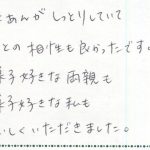 あんがしっとりしていて
との相性も良かったです。
菓子好きな両親も
菓子好きな私も
しくいただきました。